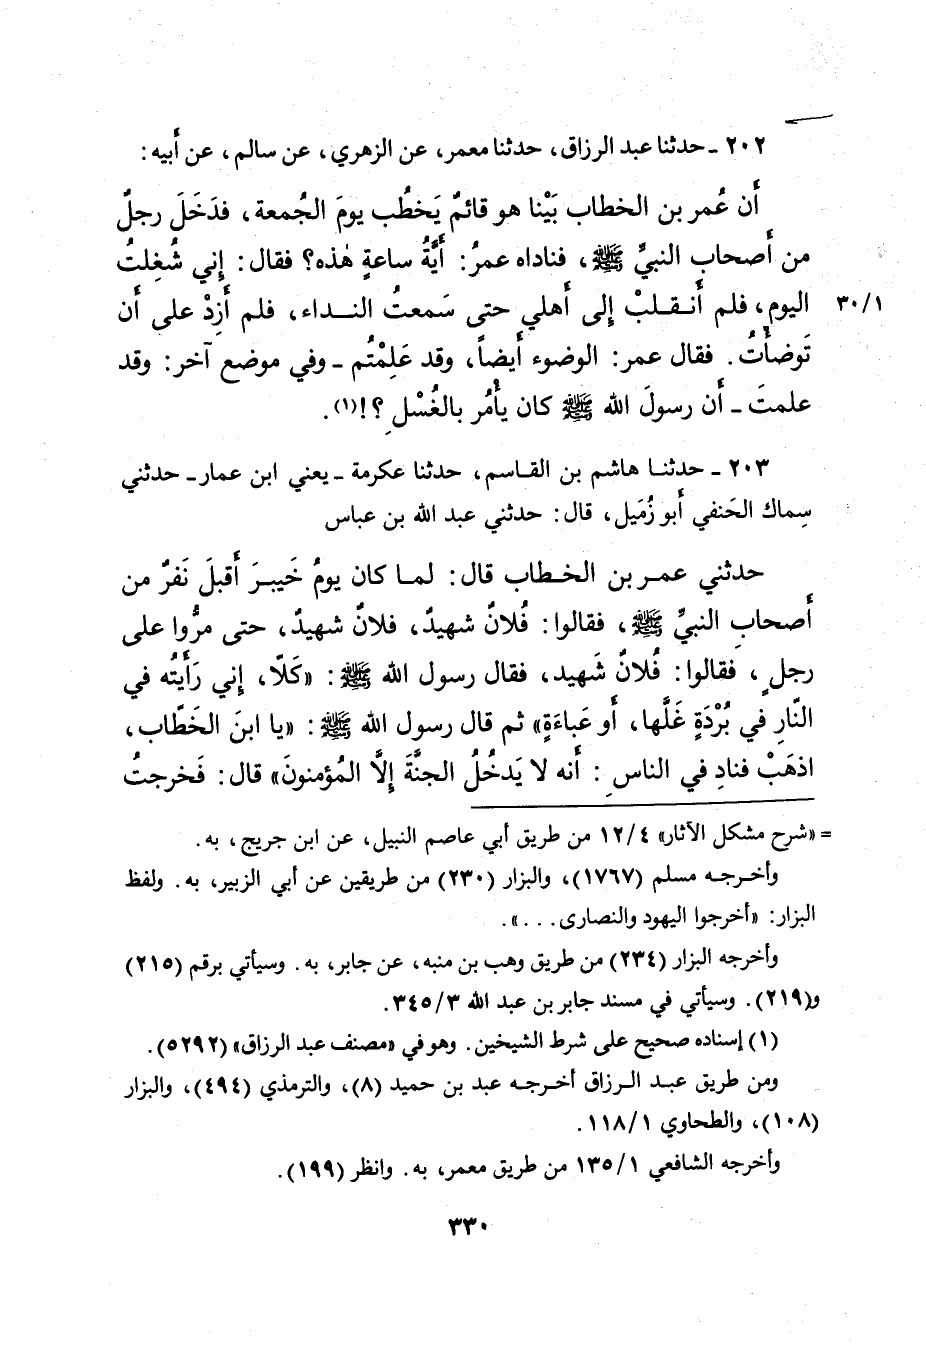 ٢٠٢ ـ حدثنا عبد الرزاق، حدثنا معمر، عن الزهري، عن سالم، عن أبيه:
أَن عُمر بن الخطاب بَيْنا هو قائمٌ يَخطُب يومَ الجُمعة، فدَخَلَ رجلٌ
من أَصحاب النبيِّ ﷺ، فناداه عمرُ: أَيَّةُ ساعةٍ هٰذه؟ فقال: إِني شُغِلتُ
اليوم، فلم أَنقلبْ إِلى أَهلي حتى سَمعتُ النداء، فلم أَزِدْ على أَن ٣٠/١
تَوضأْتُ. فقال عمر: الوضوء أَيضاً، وقد عَلِمْتُم ـ وفي موضع آخر: وقد
علمتَ ـ أَن رسولَ الله ﷺ كان يأْمُر بالغُسْلِ؟!(١).
٢٠٣ ـ حدثنا هاشم بن القاسم، حدثنا عكرمة ـ يعني ابن عمار ـ حدثني
سِماك الحَنفي أَبو زُمَيل، قال: حدثني عبد الله بن عباس
حدثني عمر بن الخطاب قال: لما كان يومُ خَيبرَ أَقبلَ نَفرٌ من
أَصحابِ النبيِّ ﷺ، فقالوا: فُلانٌ شهيدٌ، فلانٌ شهيدٌ، حتى مرُّوا على
رجلٍ، فقالوا: فُلانٌ شَهيد، فقال رسول الله ﷺ: «كَلّا، إِني رَأَيتُه في
النّارِ في بُرْدَةٍ غَلَّها، أَو عَباءَةٍ» ثم قال رسول الله ﷺ: «يا ابنَ الخَطّاب،
اذهَبْ فنادِ في الناسِ: أَنه لا يَدخُلُ الجنَّةَ إِلَّا المُؤمنونَ» قال: فَخرجتُ
= «شرح مشكل الآثار» ١٢/٤ من طريق أبي عاصم النبيل، عن ابن جريج، به.
وأخرجه مسلم (١٧٦٧)، والبزار (٢٣٠) من طريقين عن أبي الزبير، به. ولفظ
البزار: «أخرجوا اليهود والنصارى...».
وأخرجه البزار (٢٣٤) من طريق وهب بن منبه، عن جابر، به. وسيأتي برقم (٢١٥)
و(٢١٩). وسيأتي في مسند جابر بن عبد الله ٣٤٥/٣.
(١) إسناده صحيح على شرط الشيخين. وهو في «مصنف عبد الرزاق» (٥٢٩٢).
ومن طريق عبد الرزاق أخرجه عبد بن حميد (٨)، والترمذي (٤٩٤)، والبزار
(١٠٨)، والطحاوي ١١٨/١.
وأخرجه الشافعي ١٣٥/١ من طريق معمر، به. وانظر (١٩٩).
٣٣٠